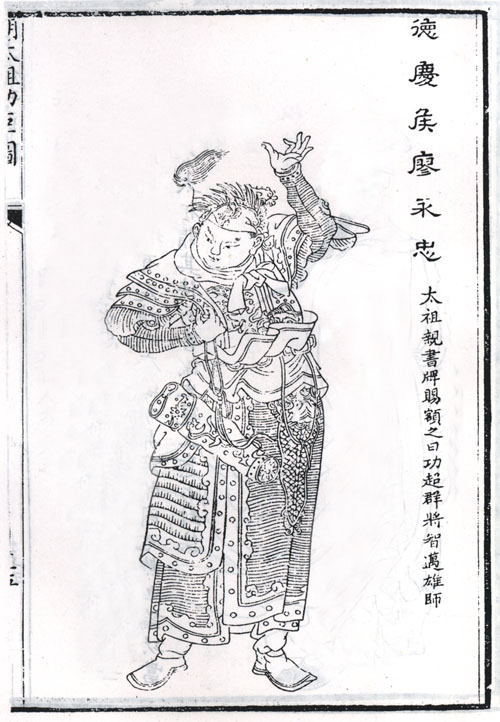 德慶侯廖永忠
太祖親書牌賜額之曰功超群將智邁雄師
明太祖功臣圖